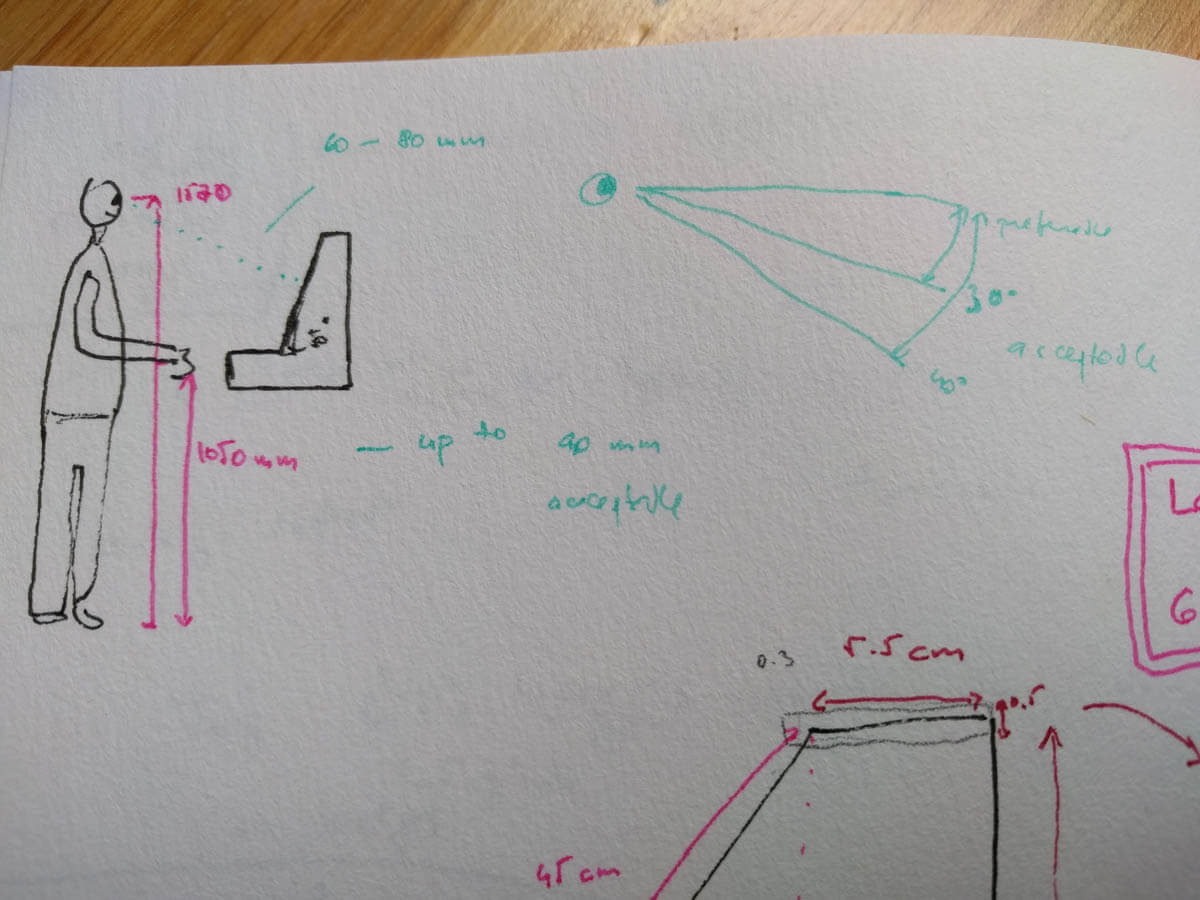 60 – 80 mm
1570
preferable
30°
acceptable
40°
1050 mm
— up to 90 mm
acceptable
L
G
0.3
5.5 cm
0.5
45 cm